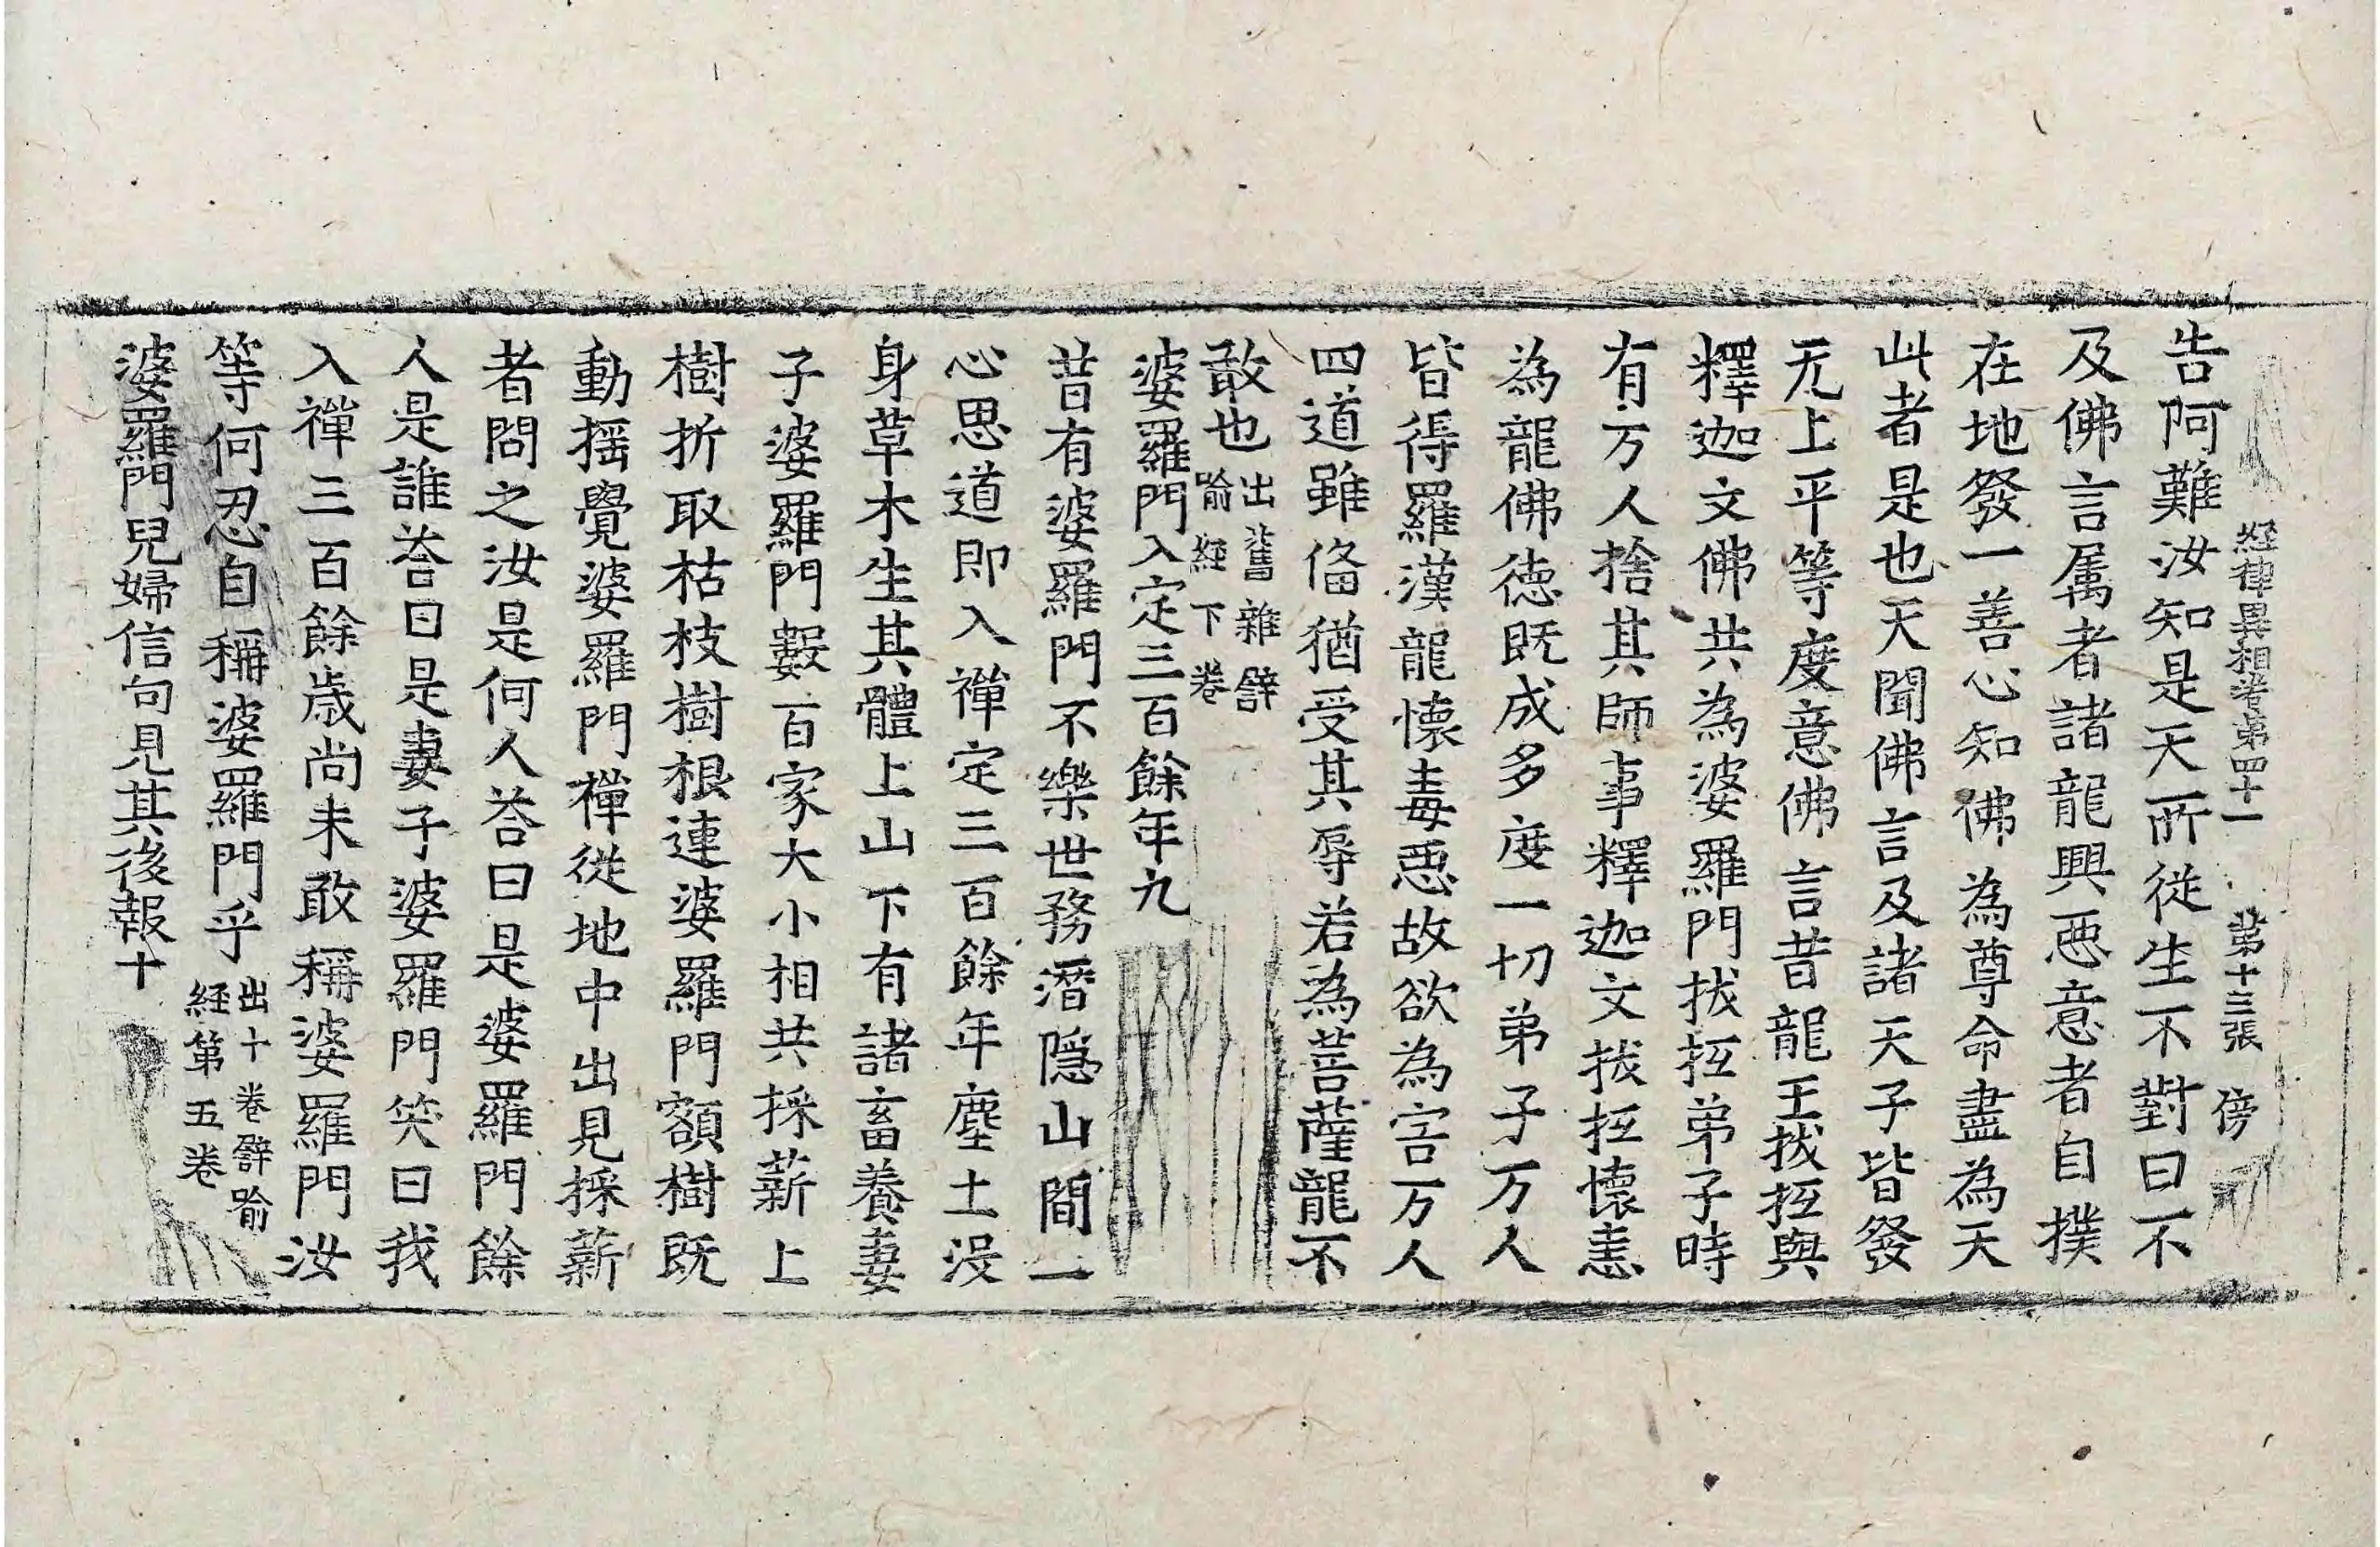 經律異相卷第四十一 第十三張 傍
告阿難汝知是天所從生不對曰不
及佛言属者諸龍興惡意者自撲
在地發一善心知佛為尊命盡為天
此者是也天聞佛言及諸天子皆發
无上平等度意佛言昔龍王拔抵與
釋迦文佛共為婆羅門拔抵弟子時
有万人捨其師事釋迦文拔抵懷恚
為龍佛德既成多度一切弟子万人
皆得羅漢龍懷毒惡故欲為害万人
四道雖俻猶受其辱若為菩薩龍不
敢也出舊雜譬
喻經下卷
婆羅門入定三百餘年九
昔有婆羅門不樂世務潛隱山間一
心思道即入禪定三百餘年塵土没
身草木生其體上山下有諸畜養妻
子婆羅門數百家大小相共採薪上
樹折取枯枝樹根連婆羅門額樹既
動搖覺婆羅門禪從地中出見採薪
者問之汝是何人荅曰是婆羅門餘
人是誰荅曰是妻子婆羅門笑曰我
入禪三百餘歲尚未敢稱婆羅門汝
等何忍自稱婆羅門乎出十卷譬喻
經第五卷
婆羅門兒婦信句見其後報十